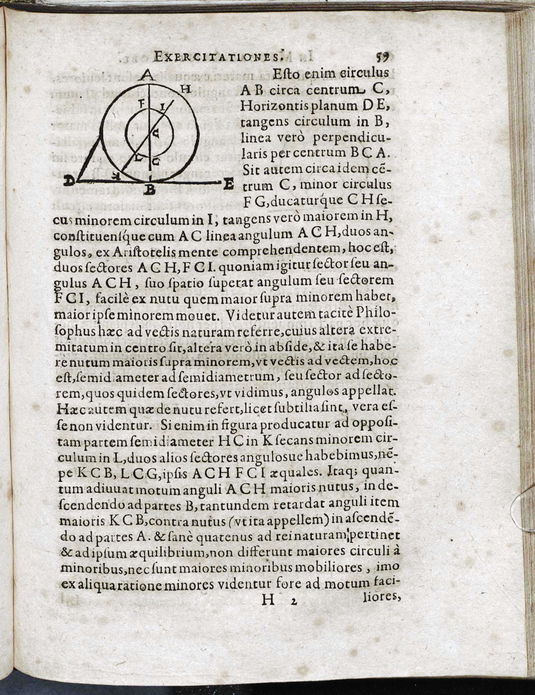 EXERCITATIONES. 59
A
H
F
I
C
L
G
D
K
B
E
Esto enim circulus
A B circa centrum C,
Horizontis planum D E,
tangens circulum in B,
linea verò perpendicu-
laris per centrum B C A.
Sit autem circa idem cē-
trum C, minor circulus
F G, ducaturque C H se-
cus minorem circulum in I, tangens verò maiorem in H,
constituensque cum A C linea angulum A C H, duos an-
gulos, ex Aristotelis mente comprehendentem, hoc est,
duos sectores A C H, F C I. quoniam igitur sector seu an-
gulus A C H, suo spatio superat angulum seu sectorem
F C I, facilè ex nutu quem maior supra minorem habet,
maior ipse minorem mouet. Videtur autem tacitè Philo-
sophus hæc ad vectis naturam referre, cuius altera extre-
mitatum in centro sit, altera verò in abside, & ita se habe-
re nutum maioris supra minorem, vt vectis ad vectem, hoc
est, semidiameter ad semidiametrum, seu sector ad secto-
rem, quos quidem sectores, vt vidimus, angulos appellat.
Hæc autem quæ de nutu refert, licet subtilia sint, vera es-
se non videntur. Si enim in figura producatur ad opposi-
tam partem semidiameter H C in K secans minorem cir-
culum in L, duos alios sectores angulosue habebimus, nē-
pe K C B, L C G, ipsis A C H F C I æquales. Itaq; quan-
tum adiuuat motum anguli A C H maioris nutus, in de-
scendendo ad partes B, tantundem retardat anguli item
maioris K C B, contra nutus (vt ita appellem) in ascendē-
do ad partes A. & sanè quatenus ad rei naturam pertinet
& ad ipsum æquilibrium, non differunt maiores circuli à
minoribus, nec sunt maiores minoribus mobiliores, imo
ex aliqua ratione minores videntur fore ad motum faci-
H 2 liores,